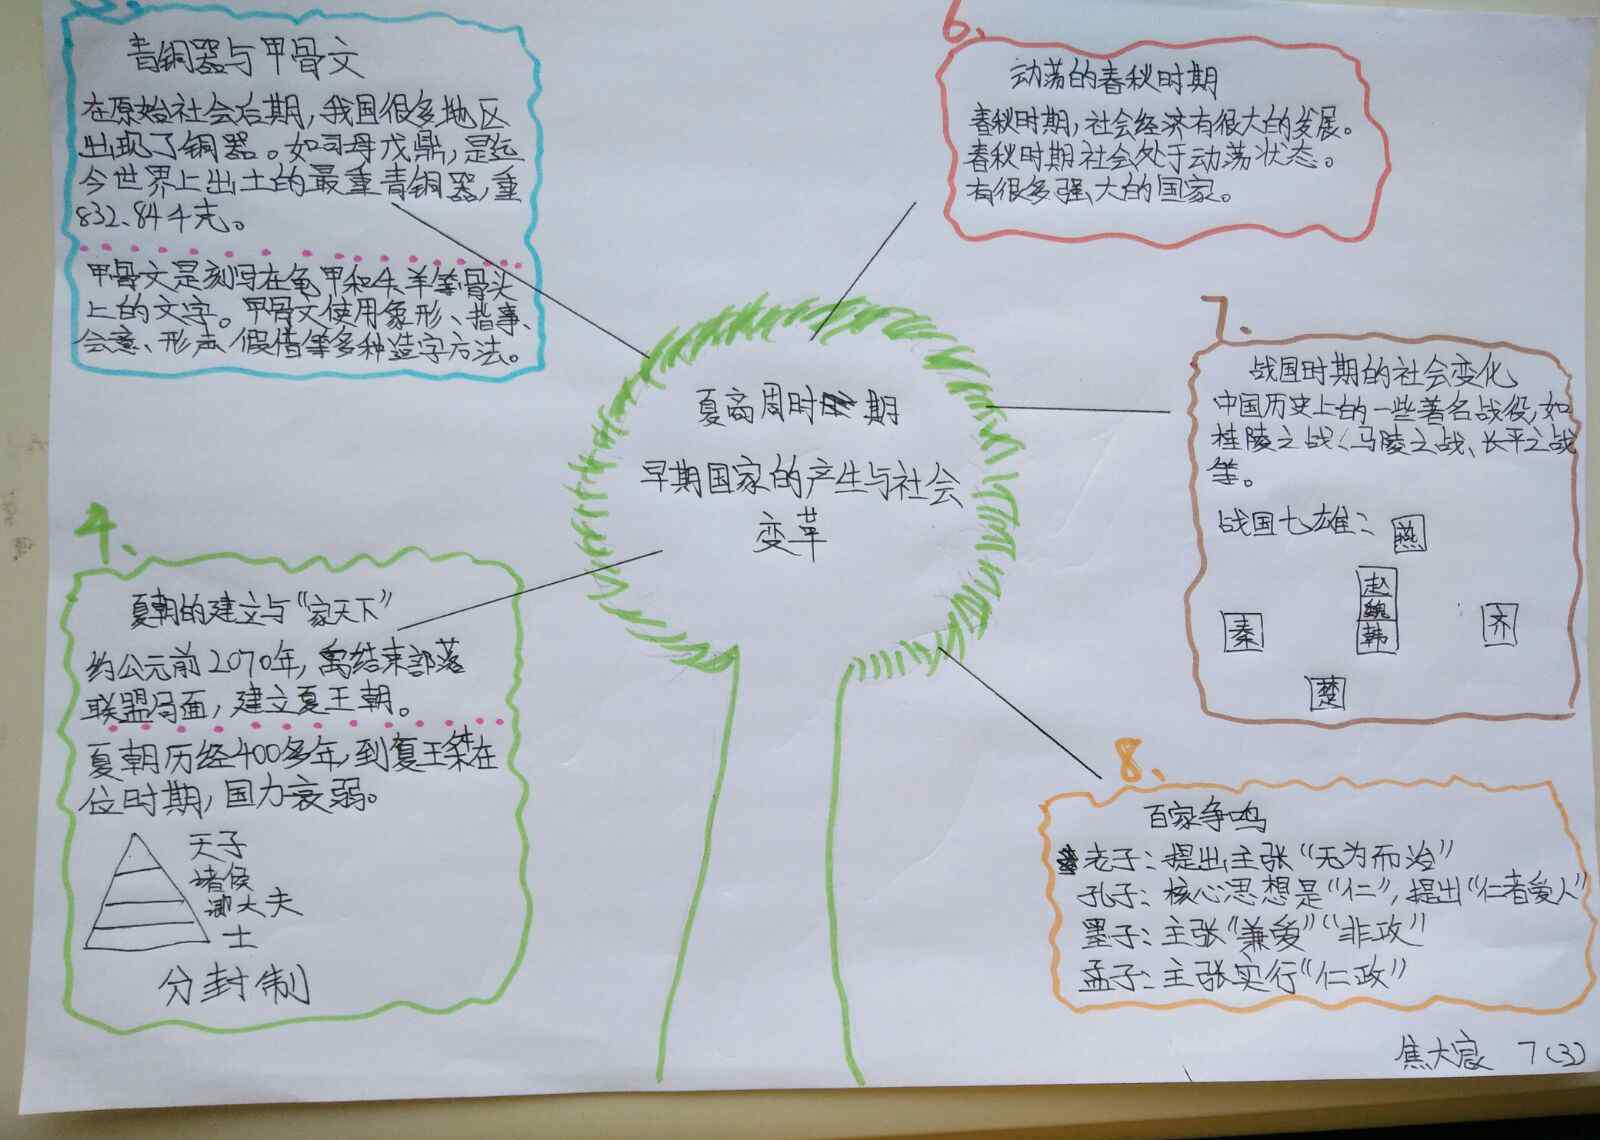 青铜器与甲骨文
在原始社会后期,我国很多地区
出现了铜器。如司母戊鼎,是迄
今世界上出土的最重青铜器,重
832.84千克。
甲骨文是刻写在龟甲和牛羊等骨头
上的文字。甲骨文使用象形、指事、
会意、形声 假借等多种造字方法。
6.
动荡的春秋时期
春秋时期,社会经济有很大的发展。
春秋时期社会处于动荡状态。
有很多强大的国家。
夏商周时期
早期国家的产生与社会
变革
7.
战国时期的社会变化
中国历史上的一些著名战役,如
桂陵之战、马陵之战、长平之战
等。
战国七雄:
燕
赵
魏
韩
秦
齐
楚
4.
夏朝的建立与“家天下”
约公元前2070年,禹结束部落
联盟局面,建立夏王朝。
夏朝历经400多年,到夏王桀在
位时期,国力衰弱。
天子
诸侯
卿大夫
士
分封制
8.
百家争鸣
老子:提出主张“无为而治”
孔子:核心思想是“仁”,提出“仁者爱人”
墨子:主张“兼爱”“非政”
孟子:主张实行“仁政”
焦大宸 7(3)